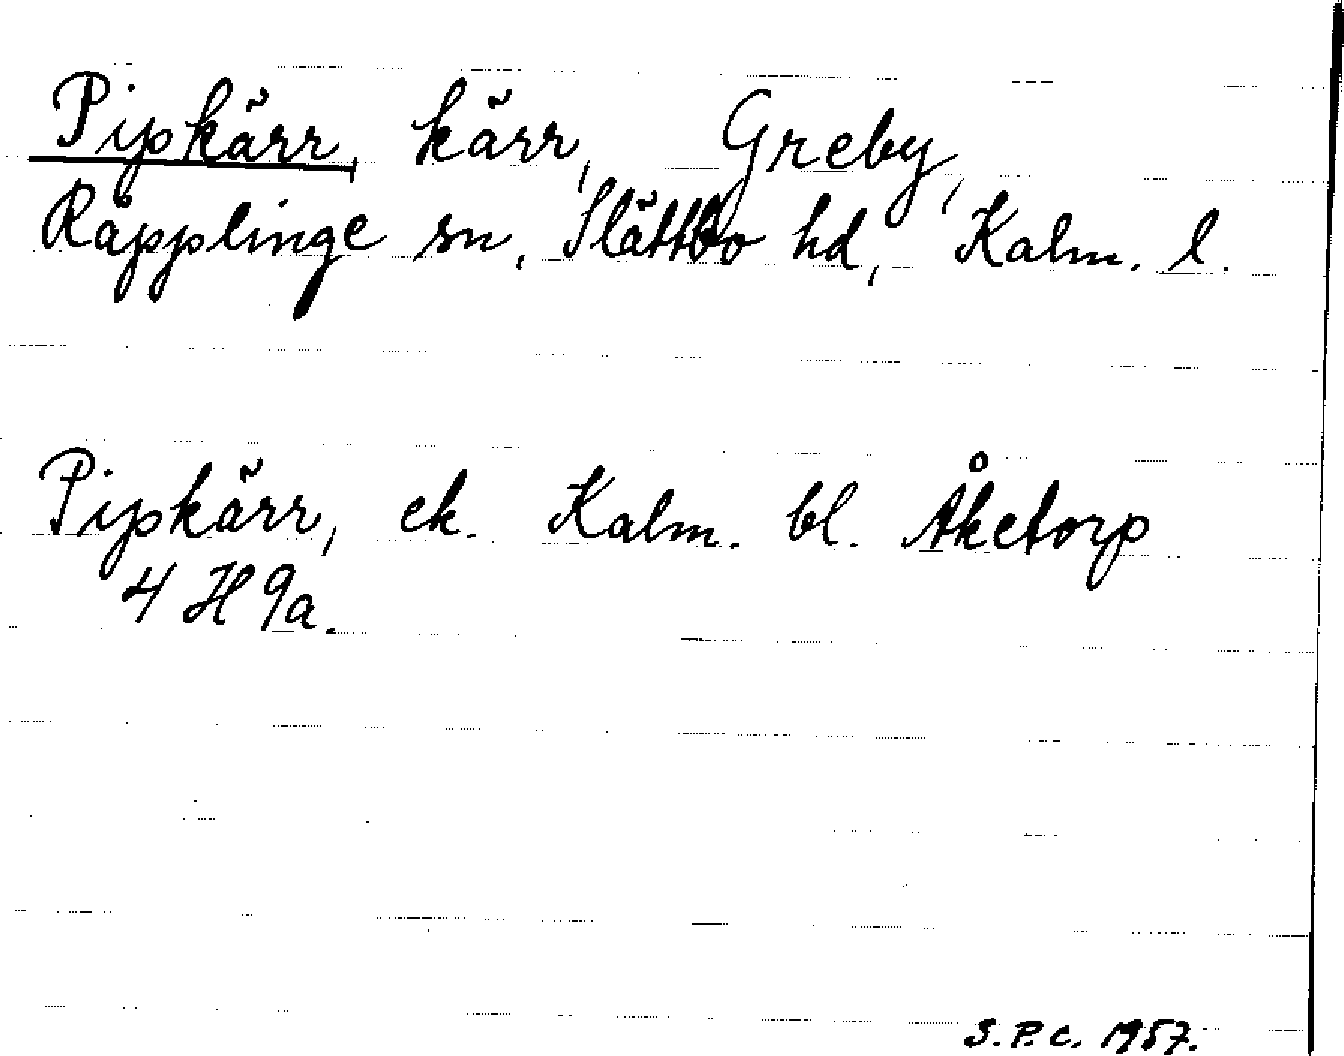 Pipkärr, kärr, Greby,
Räpplinge sn, Slättbo hd, Kalm. l.
Pipkärr, ek. Kalm. bl. Åketorp
4 H 9a.
S.P.C. 1957.